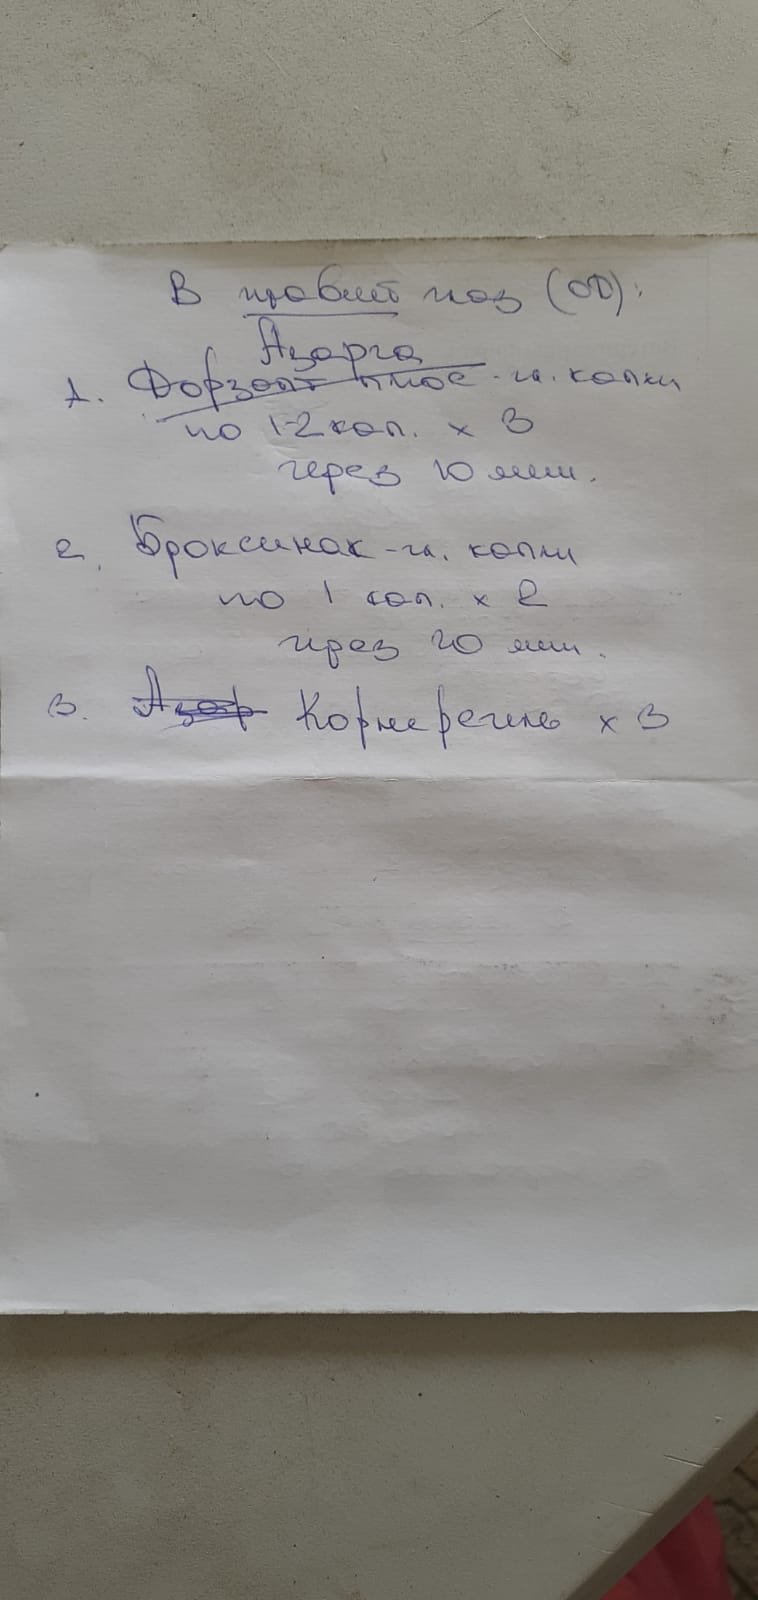 В правый глаз (OD):
Азарга
1. Дорзопт плюс - гл. капли
по 1-2 кап. х 3
через 10 мин.
2. Броксинак - гл. капли
по 1 кап. х 2
через 20 мин.
3. Азар Корнерегель х 3